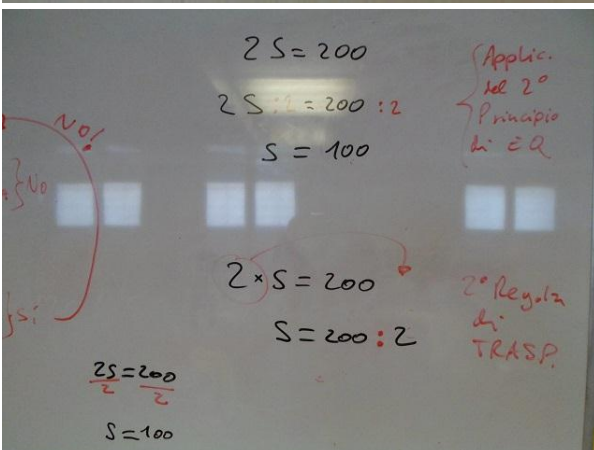 2S = 200
2S :2 = 200 :2
S = 100
Applic.
del 2°
Principio
di EQ
No!
No
sì
2 × S = 200
S = 200 : 2
2° Regola
di
TRASP.
2S = 200
2 2
S = 100